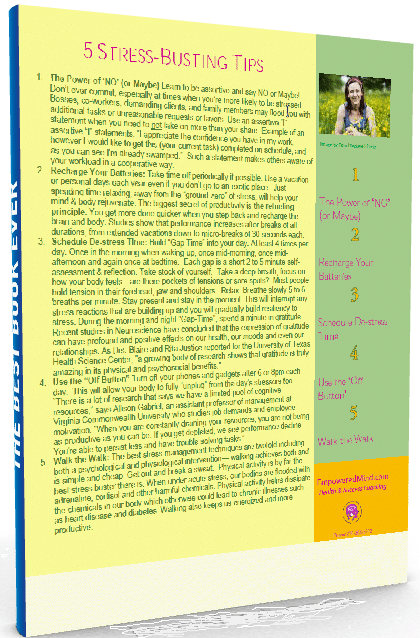 5 STRESS-BUSTING TIPS
1. The Power of "NO" (or Maybe) Learn to be assertive and say NO or Maybe!
Don't ever commit, especially at times when you're more likely to be stressed.
Bosses, co-workers, demanding clients, and family members may flood you with
additional tasks or unreasonable requests or favors. Use an assertive "I"
statement when you need to not take on more than your share. Example of an
assertive "I" statements, "I appreciate the confidence you have in my work,
however I would like to get this (your current task) completed on schedule, and
as you can see I'm already swamped." Such a statement makes others aware of
your workload in a cooperative way.
2. Recharge Your Batteries: Take time off periodically if possible. Use a vacation
or personal days each year even if you don't go to an exotic place. Just
spending time relaxing, away from the "ground zero" of stress, will help your
mind & body rejuvenate. The biggest secret of productivity is the refueling
principle. You get more done quicker when you step back and recharge the
brain and body. Studies show that performance increases after breaks of all
durations, from extended vacations down to micro-breaks of 30 seconds each.
3. Schedule De-stress Time: Hold "Gap Time" into your day. At least 4 times per
day. Once in the morning when waking up, once mid-morning, once mid-
afternoon and again once at bedtime. Each gap is a short 2 to 5 minute self-
assessment & reflection. Take stock of yourself. Take a deep breath, focus on
how your body feels - are there pockets of tensions or sore spots? Most people
hold tension in their forehead, jaw and shoulders. Relax. Breathe slowly 5 to 6
breaths per minute. Stay present and stay in the moment. This will interrupt any
stress reactions that are building up and you will gradually build resiliency to
stress. During the morning and night "Gap-Time", spend a minute in gratitude.
Recent studies in Neuroscience have concluded that the expression of gratitude
can have profound and positive effects on our health, our moods and even our
relationships. As Drs. Blaire and Rita Justice reported for the University of Texas
Health Science Center, "a growing body of research shows that gratitude is truly
amazing in its physical and psychosocial benefits."
4. Use the "Off Button" Turn off your phones and gadgets after 6 or 8pm each
day. This will allow your body to fully "unplug" from the day's stressors too.
"There is a lot of research that says we have a limited pool of cognitive
resources," says Allison Gabriel, an assistant professor of management at
Virginia Commonwealth University who studies job demands and employee
motivation. "When you are constantly draining your resources, you are not being
as productive as you can be. If you get depleted, we see performance decline.
You're able to persist less and have trouble solving tasks."
5. Walk the Walk: The best stress management techniques are twofold including
both a psychological and physiological intervention— walking achieves both and
is simple and cheap. Get out and break a sweat. Physical activity is by far the
best stress buster there is. When under acute stress, our bodies are flooded with
adrenaline, cortisol and other harmful chemicals. Physical activity helps dissipate
the chemicals in our body which otherwise could lead to chronic illnesses such
as heart disease and diabetes. Walking also keeps us energized and more
productive.
1
The Power of "NO"
(or Maybe)
2
Recharge Your
Batteries
3
Schedule De-stress
Time
4
Use the "Off
Button"
5
Walk the Walk
EmpoweredMind.com
Health & Success Coaching
THE BEST BOOK EVER